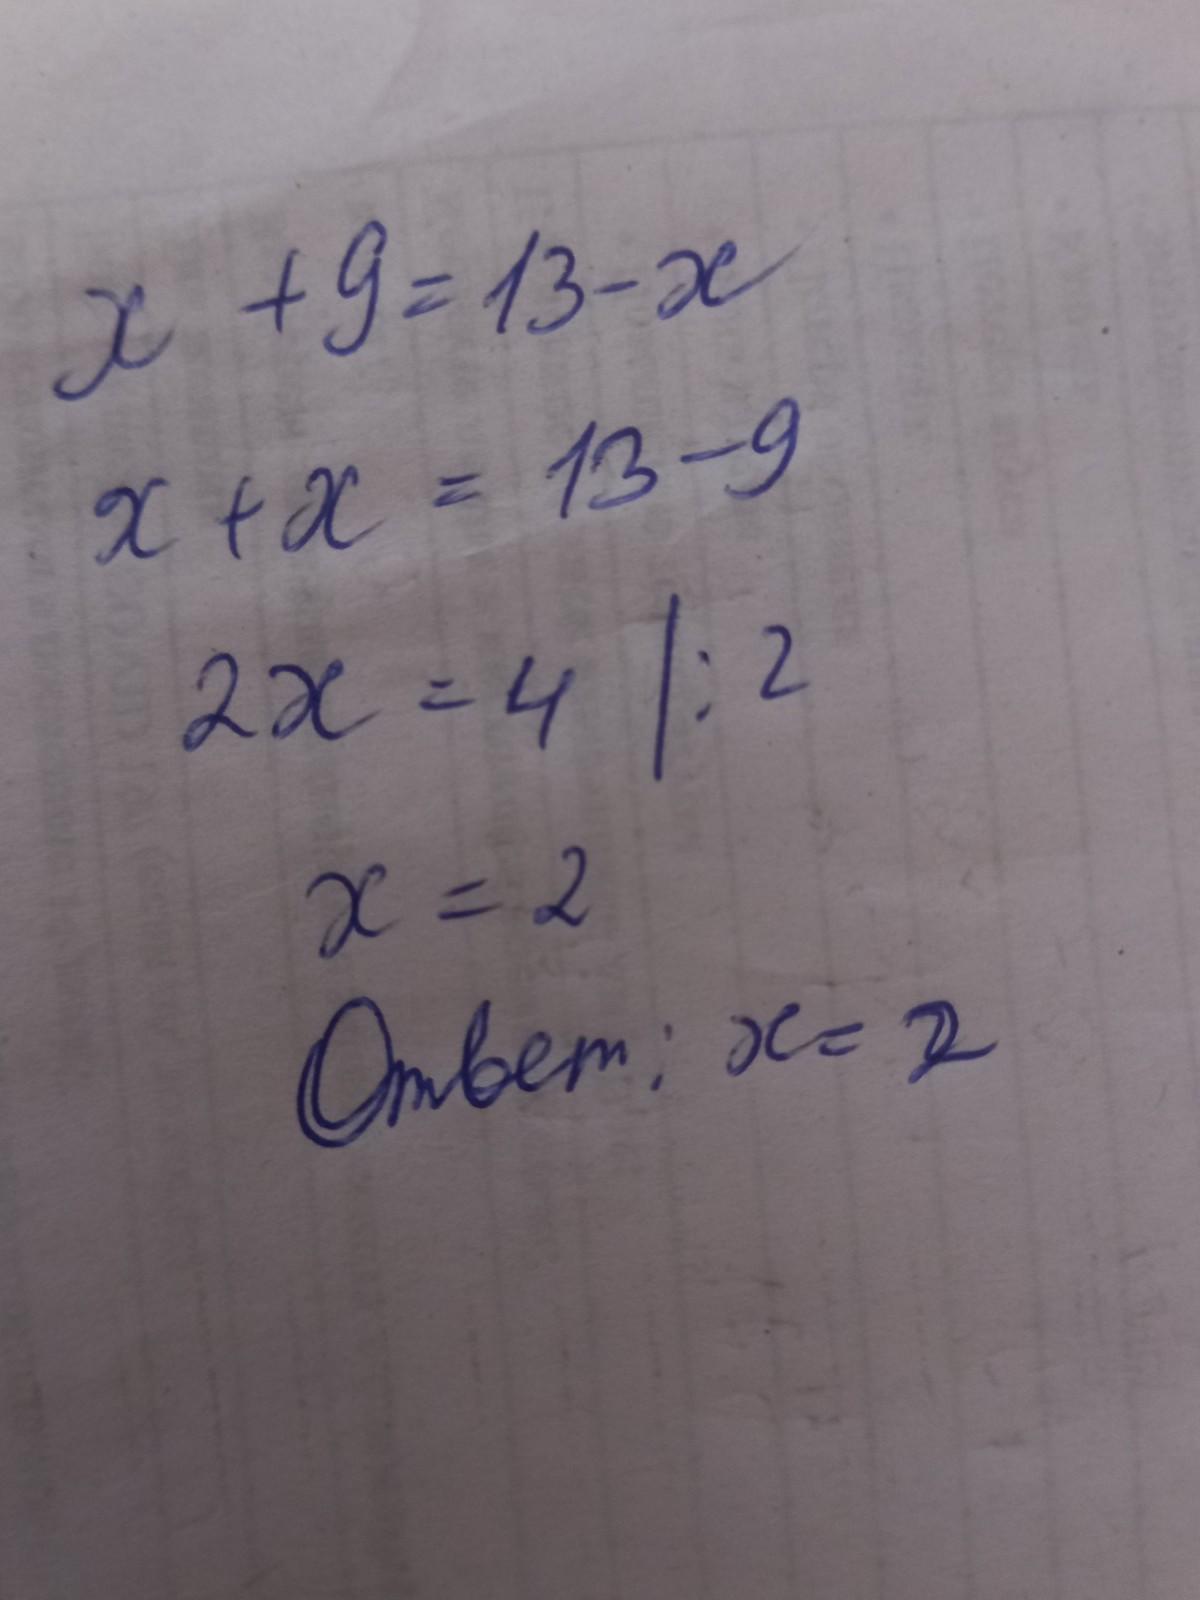 x + 9 = 13 - x
x + x = 13 - 9
2x = 4 | : 2
x = 2
Ответ: x = 2